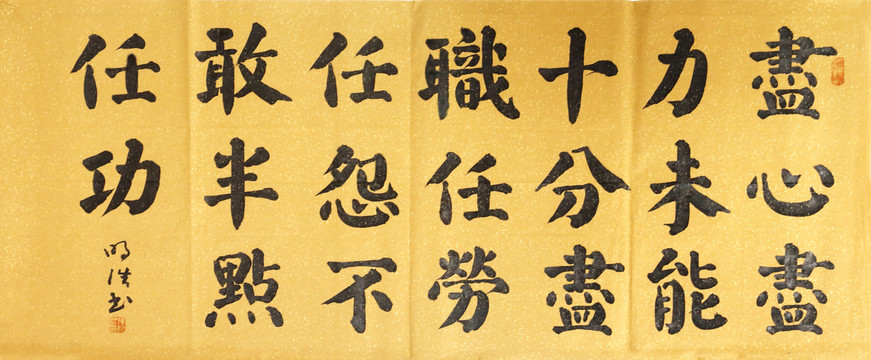 盡心盡
力未能
十分盡
職任勞
任怨不
敢半點
任功
明浩书